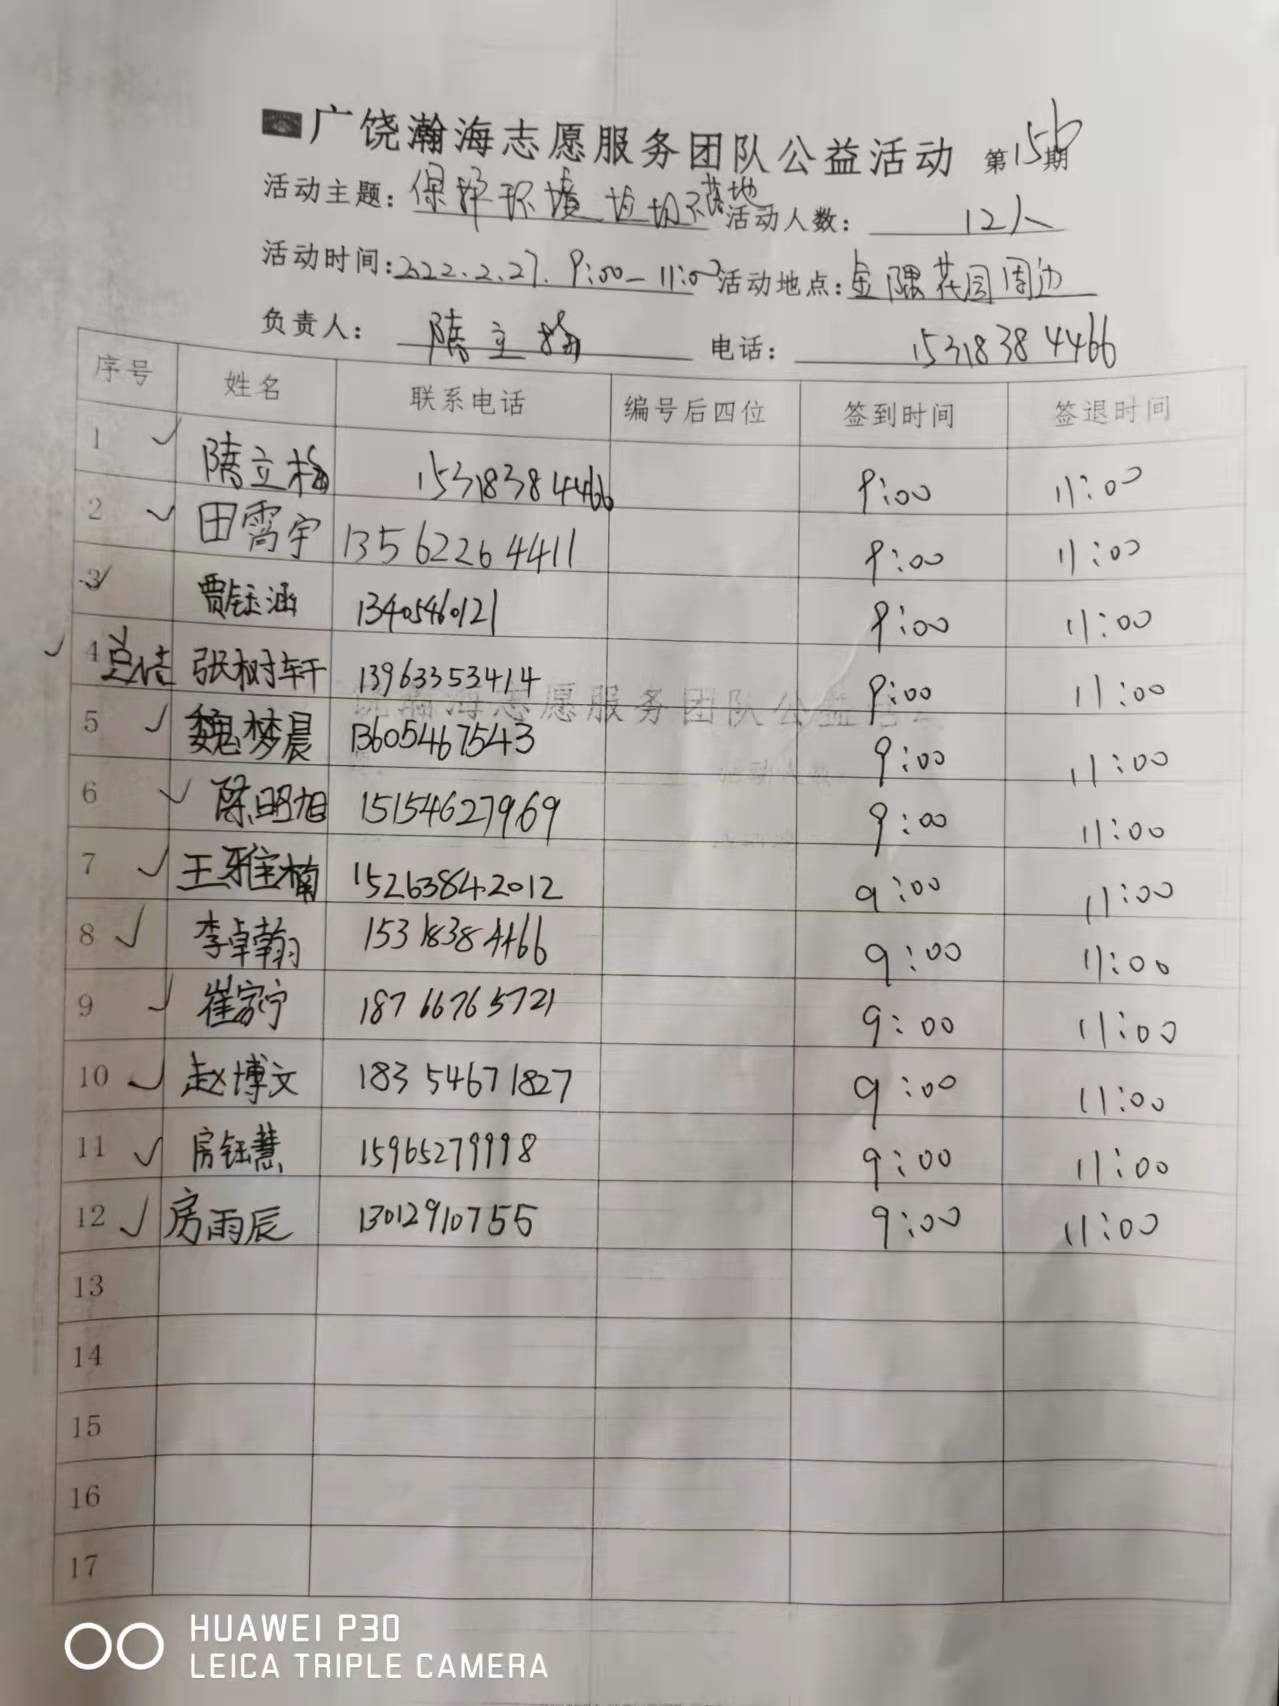 广饶瀚海志愿服务团队公益活动 第156期
活动主题: 保护环境 垃圾不落地 活动人数: 12人
活动时间: 2022.2.27. 9:00-11:00 活动地点: 金隅花园周边
负责人: 隋立梅 电话: 15318384466
序号 姓名 联系电话 编号后四位 签到时间 签退时间
1 ✓ 隋立梅 15318384466 9:00 11:00
2 ✓ 田霄宇 13562264411 9:00 11:00
3 ✓ 贾钰涵 13405460121 9:00 11:00
✓ 4 总结 张树轩 13963353414 9:00 11:00
5 ✓ 魏梦晨 13605467543 9:00 11:00
6 ✓ 陈明旭 15154627969 9:00 11:00
7 ✓ 王雅楠 15263842012 9:00 11:00
8 ✓ 李卓翰 15318384466 9:00 11:00
9 ✓ 崔家宁 18766765721 9:00 11:00
10 ✓ 赵博文 18354671827 9:00 11:00
11 ✓ 房钰慧 15965279998 9:00 11:00
12 ✓ 房雨辰 13012910755 9:00 11:00
13
14
15
16
17
HUAWEI P30
LEICA TRIPLE CAMERA